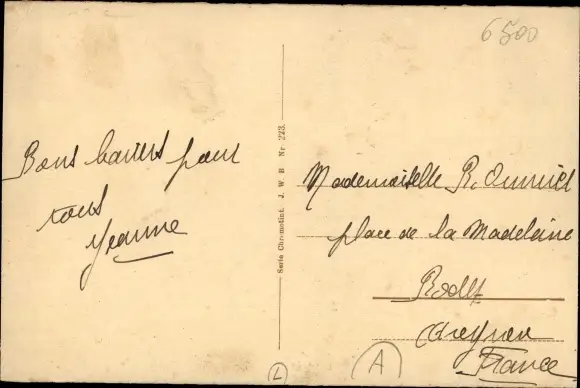 6500
Bons baisers pour
tous
Jeanne
Serie Chromotint. J. W. B Nr 223.
Mademoiselle R.
place de la Madeleine
Rodez
Aveyron
France
L
A